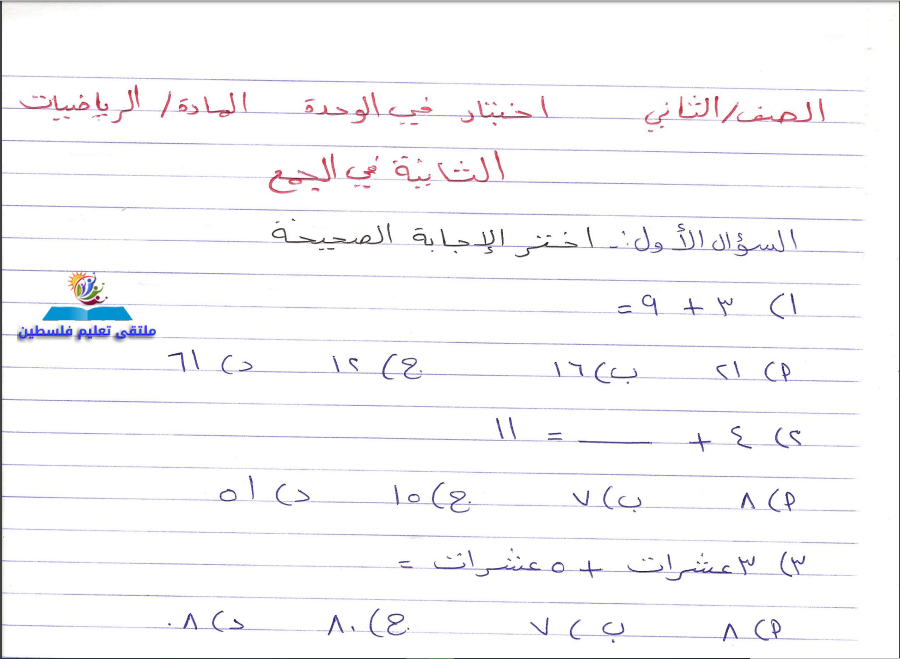 الصف/الثاني اختبار في الوحدة المادة/ الرياضيات
الثانية في الجمع
السؤال الأول:- اختر الإجابة الصحيحة
١) ٣ + ٩ =
أ) ٢١ ب) ١٦ ج) ١٢ د) ٦١
٢) ٤ + ____ = ١١
أ) ٨ ب) ٧ ج) ١٥ د) ٥١
٣) ٣ عشرات + ٥ عشرات =
أ) ٨ ب) ٧ ج) ٨٠ د) ٠٨
ملتقى تعليم فلسطين